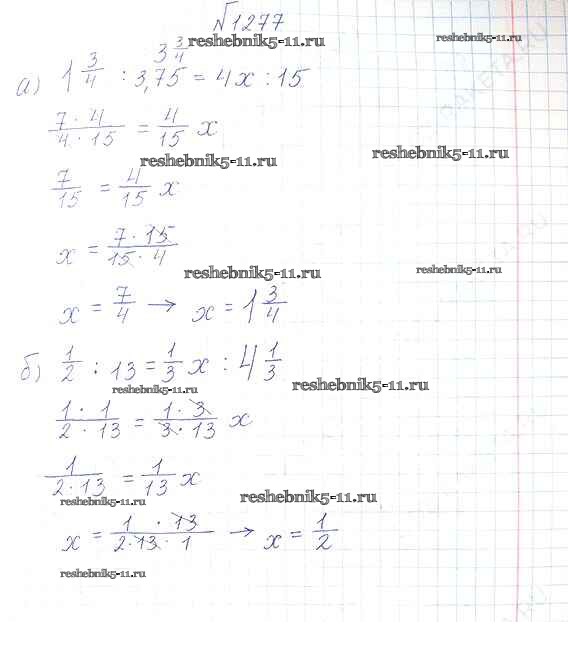 №1277
3 3/4
reshebnik5-11.ru
reshebnik5-11.ru
а) 1 3/4 : 3,75 = 4x : 15
7·4/4·15 = 4/15 x
reshebnik5-11.ru
reshebnik5-11.ru
7/15 = 4/15 x
x = 7·15/15·4
reshebnik5-11.ru
reshebnik5-11.ru
x = 7/4 → x = 1 3/4
б) 1/2 : 13 = 1/3 x : 4 1/3
reshebnik5-11.ru
reshebnik5-11.ru
1·1/2·13 = 1·3/3·13 x
1/2·13 = 1/13 x
reshebnik5-11.ru
reshebnik5-11.ru
x = 1·13/2·13·1 → x = 1/2
reshebnik5-11.ru